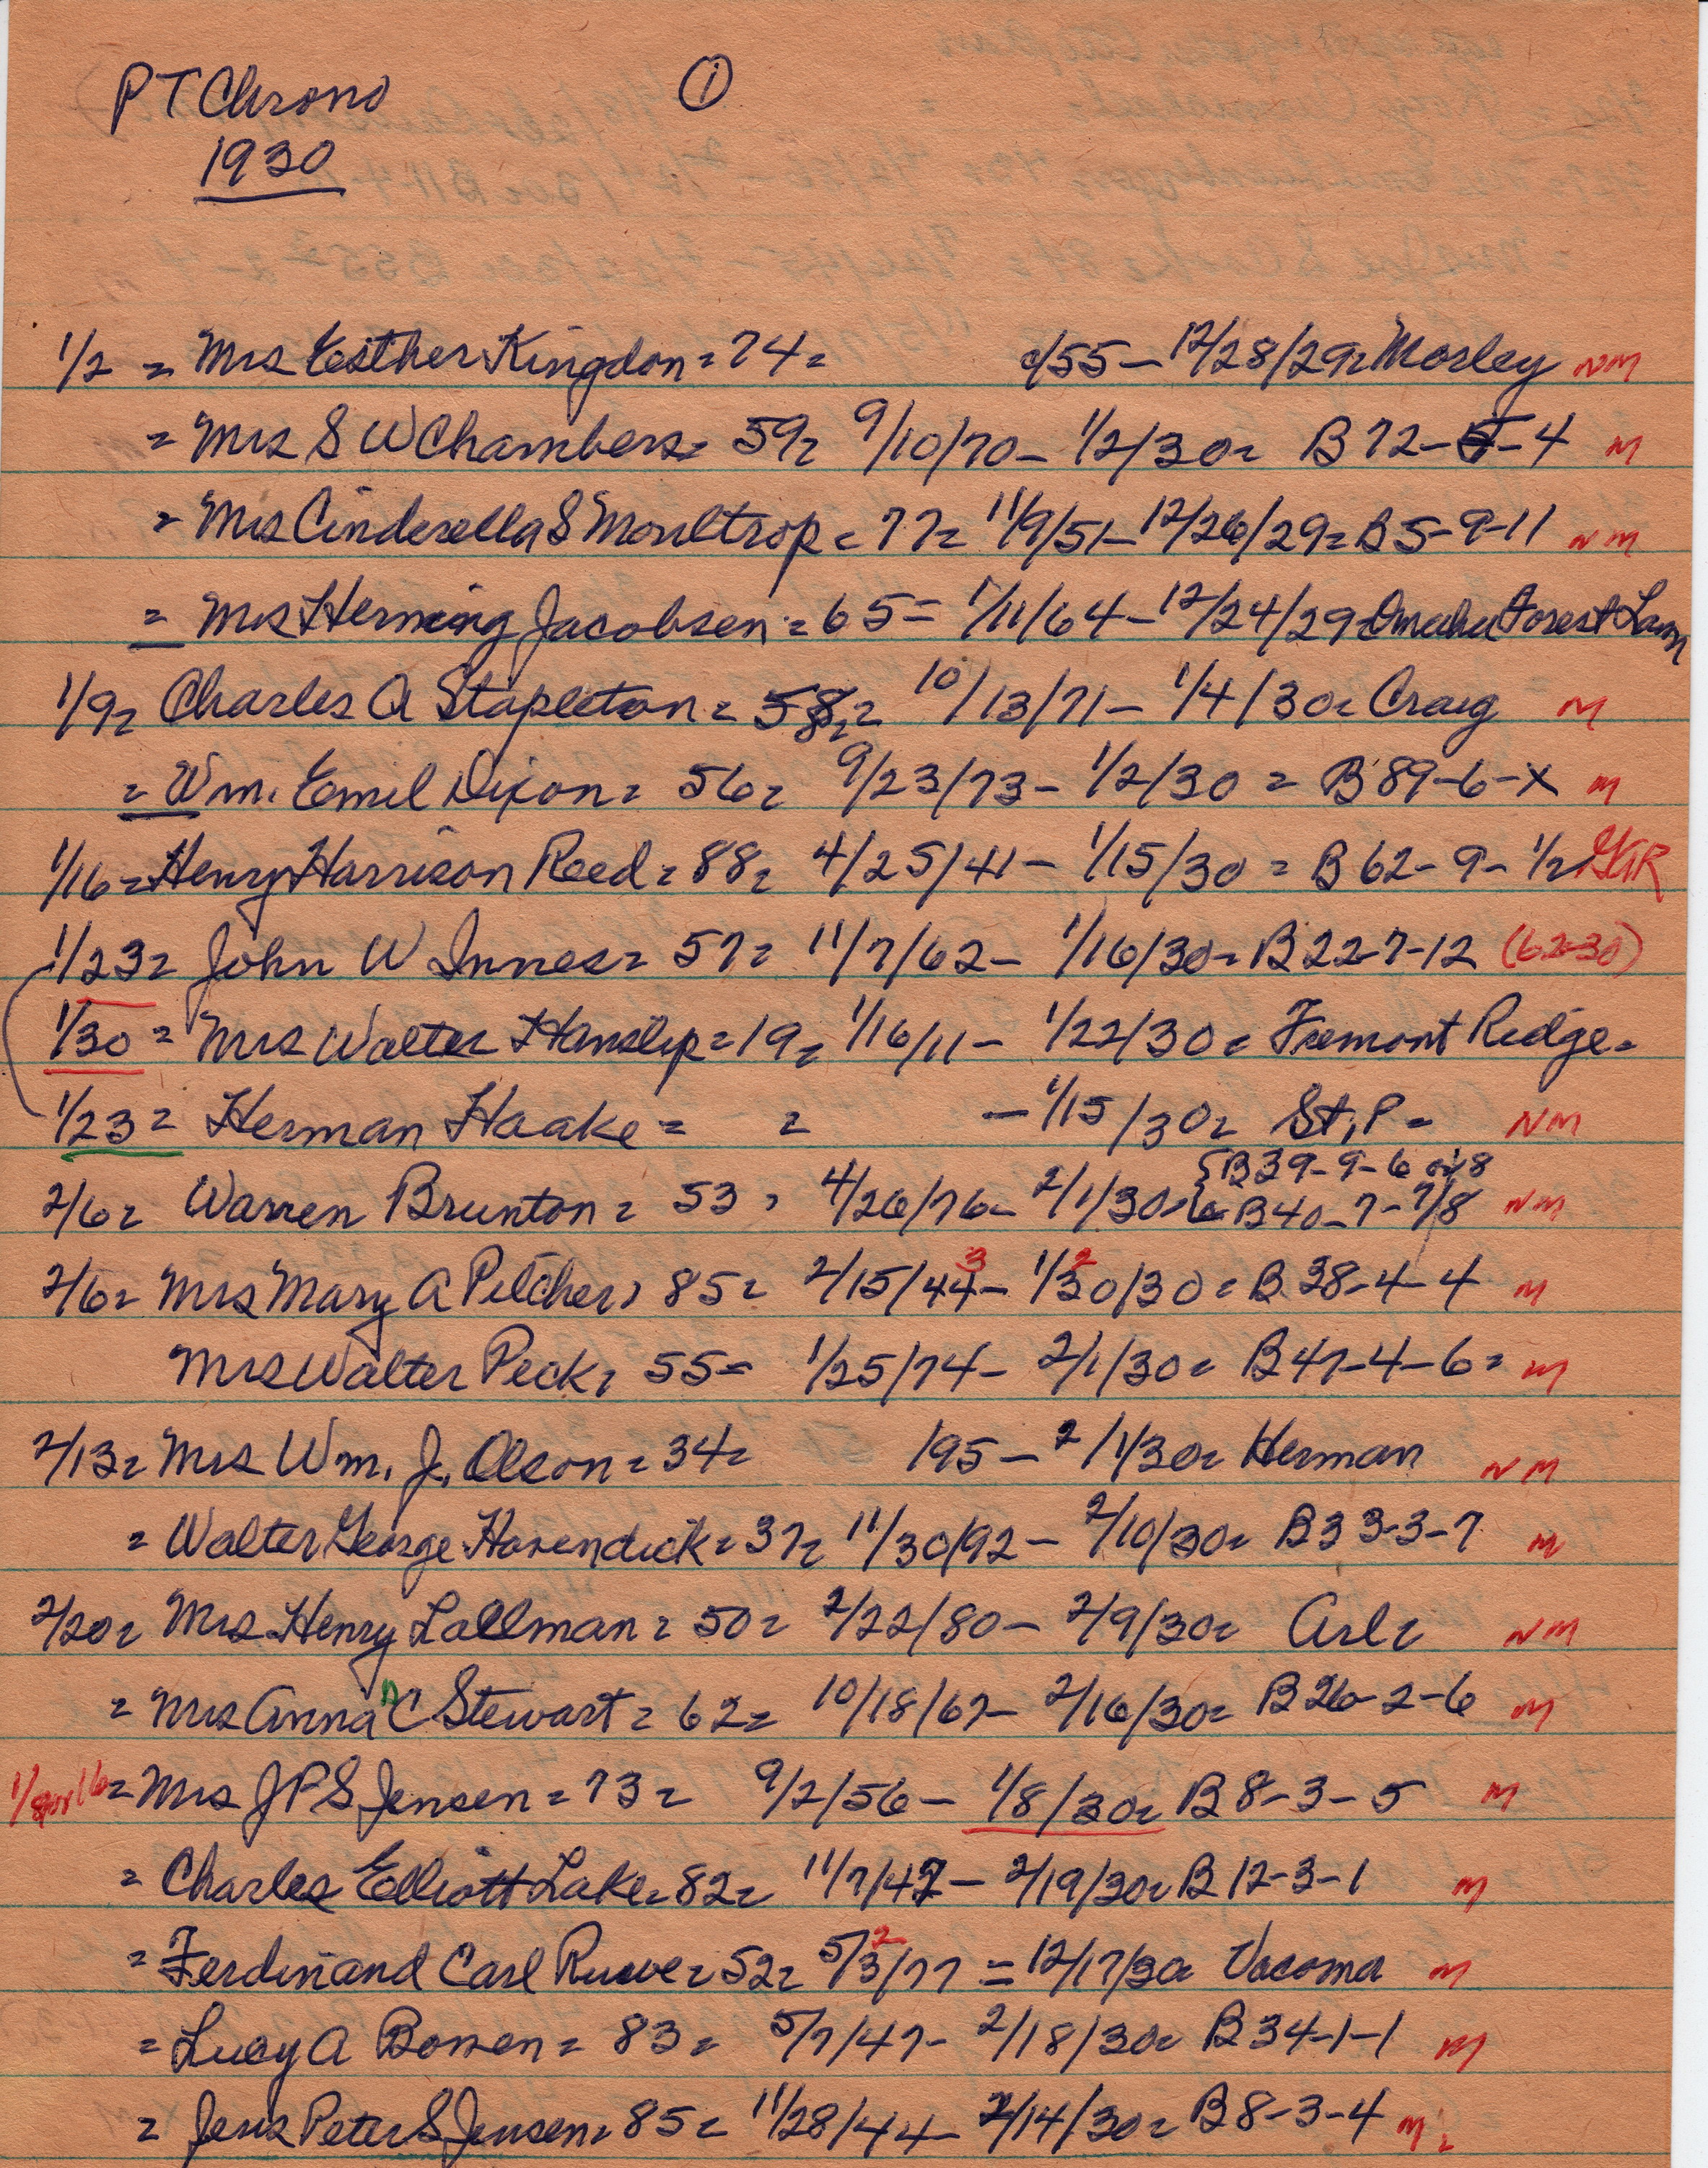 PT Chrono ①
1930
1/2 = Mrs Esther Kingdon = 74 = c/55 – 12/28/29 = Morley NM
= Mrs S W Chambers = 59 = 9/10/70 – 1/2/30 = B 72-5-4 M
= Mrs Cinderella S Moultrop = 77 = 11/9/51 – 12/26/29 = B 5-9-11 NM
= Mrs Herming Jacobsen = 65 = 1/11/64 – 12/24/29 = Omaha Forest Lawn
1/9 = Charles A Stapleton = 58 = 10/13/71 – 1/4/30 = Craig M
= Wm. Emil Dixon = 56 = 9/23/73 – 1/2/30 = B 89-6-X M
1/16 = Henry Harrison Reed = 88 = 4/25/41 – 1/15/30 = B 62-9-1/2 GAR
1/23 = John W Innes = 57 = 11/7/62 – 1/16/30 = B 22-7-12 (62-30)
1/30 = Mrs Walter Hanslip = 19 = 1/16/11 – 1/22/30 = Fremont Ridge =
1/23 = Herman Haake = = – 1/15/30 = St. P = NM
{B 39-9-6 or 8
2/6 = Warren Brunton = 53 = 4/26/76 – 2/1/30 = B 40-7-7/8 NM
3 2
2/6 = Mrs Mary A Pilcher = 85 = 2/15/44 – 1/30/30 = B 38-4-4 M
Mrs Walter Peck = 55 = 1/25/74 – 2/1/30 = B 47-4-6 = M
2/13 = Mrs Wm. J. Olson = 34 = /95 – 2/1/30 = Herman NM
= Walter George Havendick = 37 = 11/30/92 – 2/10/30 = B 33-3-7 M
2/20 = Mrs Henry Lallman = 50 = 2/22/80 – 2/9/30 = Arl = NM
= Mrs Anna C Stewart = 62 = 10/18/67 – 2/16/30 = B 26-2-6 M
1/8 or 16 = Mrs J P S Jensen = 73 = 9/2/56 – 1/8/30 = B 8-3-5 M
= Charles Elliott Lake = 82 = 11/7/47 – 2/19/30 = B 12-3-1 M
2
= Ferdinand Carl Ruwe = 52 = 5/3/77 = 12/17/30 = Vacoma M
= Lucy A Bowen = 83 = 5/7/47 – 2/18/30 = B 34-1-1 M
= Jens Peter S Jensen = 85 = 11/28/44 – 2/14/30 = B 8-3-4 M =